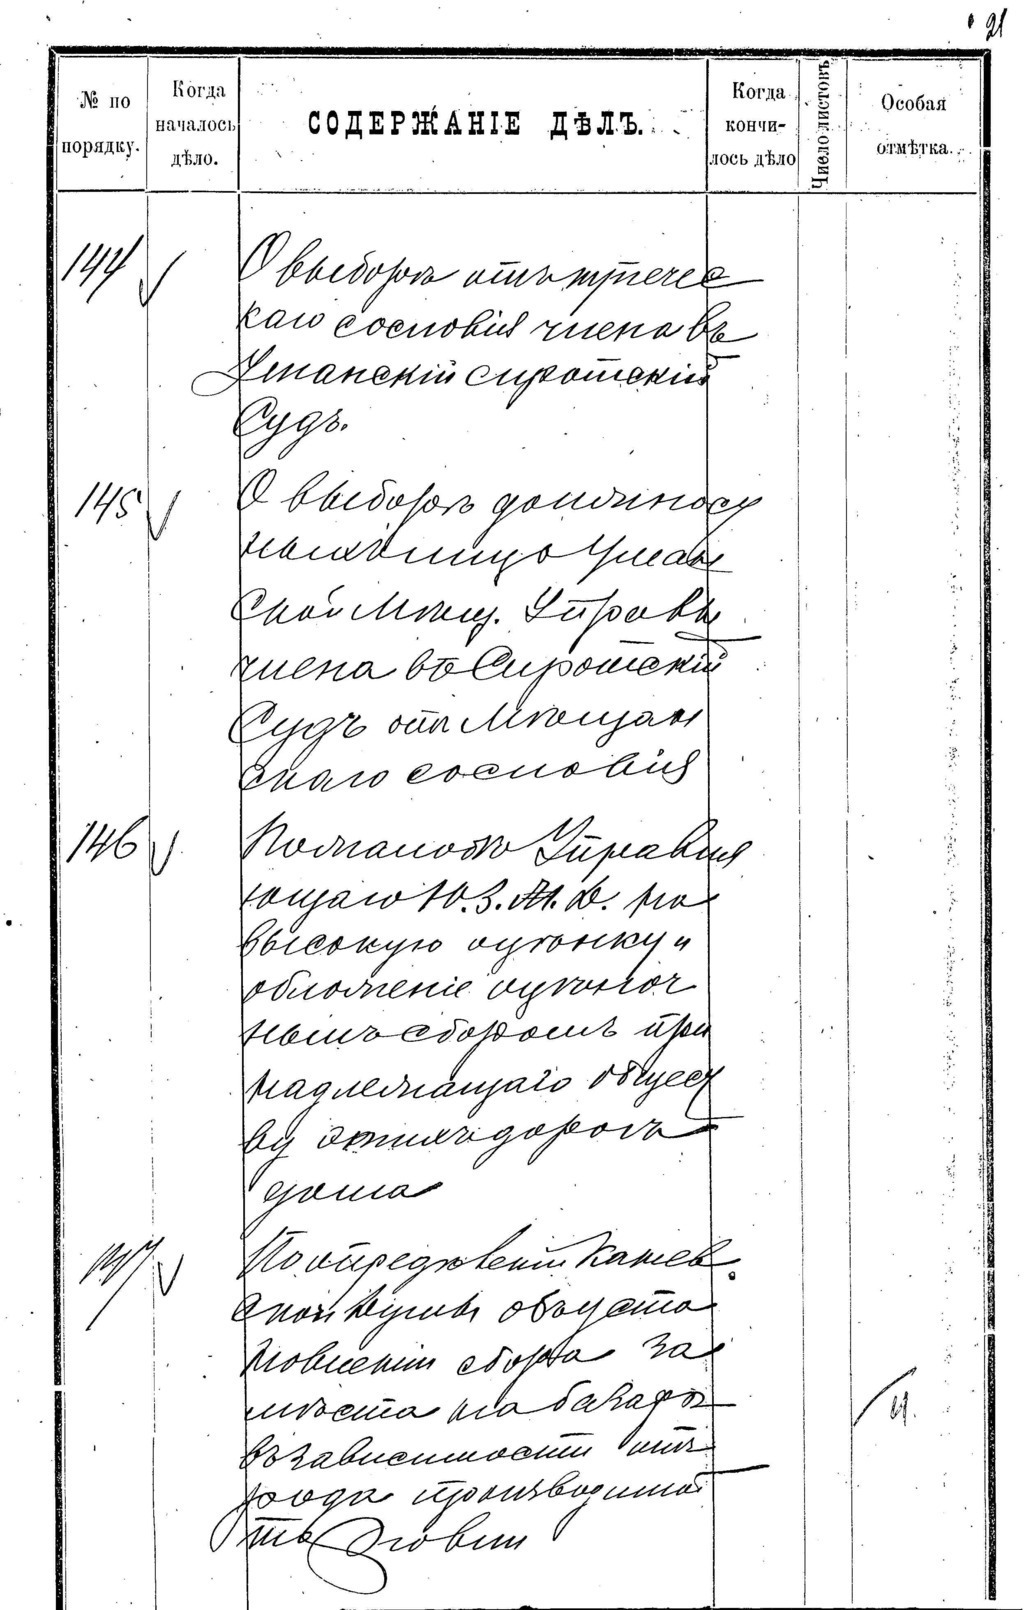 21
№ по порядку.
Когда началось дѣло.
СОДЕРЖАНІЕ ДѢЛЪ.
Когда кончи-лось дѣло
Число листовъ
Особая отмѣтка.
144
О выборѣ отъ купечес
каго сословія члена въ
Уманскій сиротскій
Судъ.
145
О выборѣ должност
ныхъ лицъ Уман
ской Мѣщ. Управы
члена въ Сиротскій
Судъ отъ Мѣщан
скаго сословія
146
По жалобѣ Управля
ющаго Ю.З.Ж.Д. на
высокую оцѣнку и
обложеніе оцѣноч
нымъ сборомъ при
надлежащаго общест
ву этихъ дорогъ
дома
147
По опредѣленію Канев
ской Думы объ уста
новленіи сбора за
мѣста на базарѣ
въ зависимости отъ
рода производимой
торговли